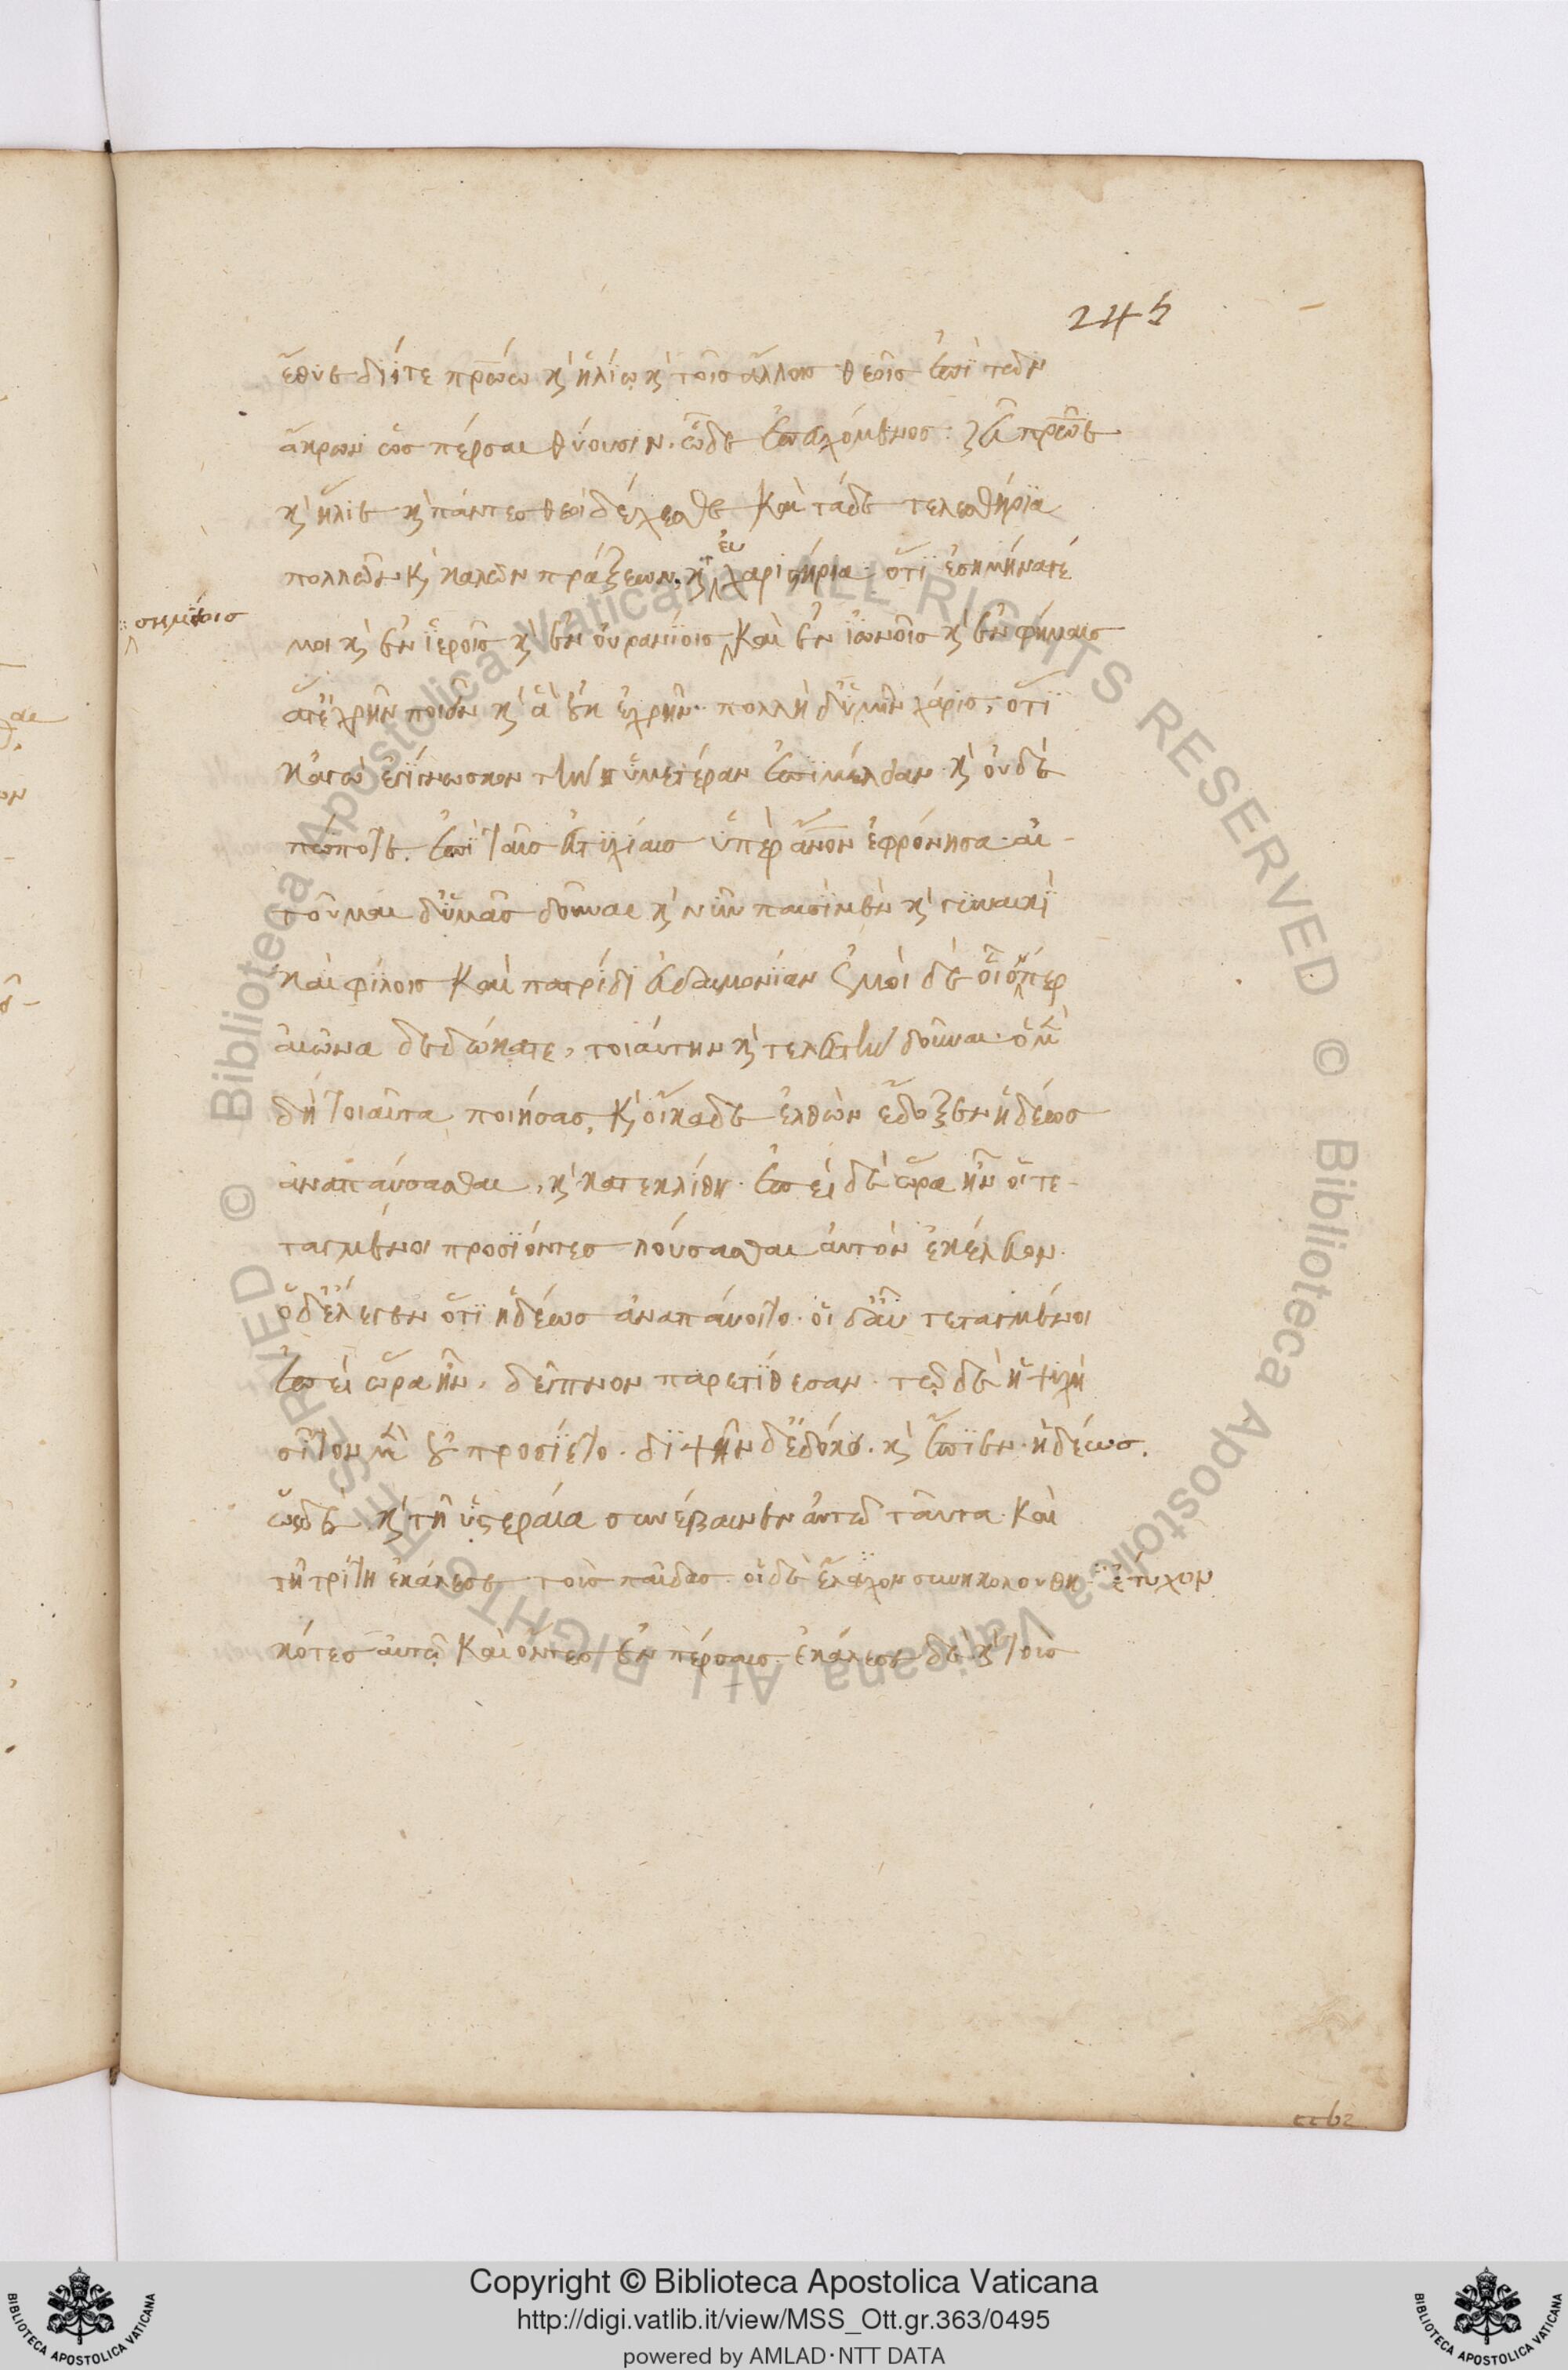 245
ἔθυε διΐτε πρώω κ̀ ἡλίω κ̀ τοῖσ ἄλλοισ θεοῖσ ἐπὶ τῶν
ἄκρων ὡσ πέρσαι θύουσιν. ὧδε ἐπευχόμενοσ: ζεῦ πρῶε
κ̀ ἥλιε κ̀ πάντεσ θεοὶ δέχεσθε καὶ τάδε τελεστήρια
πολλῶν κ̀ καλῶν πράξεων. κ̀ χαριστήρια. ὅτι ἐσημήνατέ
ευ
σημείοισ
μοι κ̀ ἐν ἱεροῖσ κ̀ ἐν οὐρανίοισ καὶ ἐν ἰωνοῖσ κ̀ ἐν φήμαισ
ἅτ' ἐχρῆν ποιεῖν κ̀ ἃ οὐκ ἐχρῆν. πολλὴ δ' ὑμῖν χάρισ, ὅτι
κἀγὼ ἐγίγνωσκον τὴν ὑμετέραν ἐπιμέλειαν κ̀ οὐδὲ
πώποτε. ἐπὶ ταῖσ εὐτυχίαισ ὑπὲρ ἄνον ἐφρόνησα. αἰ-
τοῦμαι δ' ὑμᾶσ δοῦναι κ̀ νῦν παισὶ μὲν κ̀ γυναικὶ
καὶ φίλοισ καὶ πατρίδι εὐδαιμονίαν ἐμοὶ δὲ οἷόνπερ
αἰῶνα δεδώκατε, τοιαύτην κ̀ τελευτὴν δοῦναι. ὁ μὲν
δὴ τοιαῦτα ποιήσασ, κ̀ οἴκαδε ἐλθὼν ἔδοξεν ἡδέωσ
ἀναπαύσασθαι, κ̀ κατεκλίθη. ἐπεὶ δὲ ὥρα ἦν οἱ τε-
ταγμένοι προσϊόντεσ λούσασθαι αὐτὸν ἐκέλευον.
ὁ δ' ἔλεγεν ὅτι ἡδέωσ ἀναπαύοιτο. οἱ δ' αὖ τεταγμένοι
ἐπεὶ ὥρα ἦν, δεῖπνον παρετίθεσαν. τῷ δὲ ἡ ψυχὴ
σῖτον μὲν οὐ προσίετο. διψῆν δ' ἐδόκει. κ̀ ἔπιεν ἡδέωσ.
ὡσ δὲ κ̀ τῇ ὑστεραία συνέβαινεν αὐτῶ ταῦτα. καὶ
τῇ τρίτη ἐκάλεσε τοὺσ παῖδασ. οἱ δὲ ἔτυχον συνηκολουθη ἔτυχον
κότεσ αὐτῷ καὶ ὄντεσ ἐν πέρσαισ. ἐκάλεσε δὲ κ̀ τοὺσ
Copyright © Biblioteca Apostolica Vaticana
http://digi.vatlib.it/view/MSS_Ott.gr.363/0495
powered by AMLAD·NTT DATA